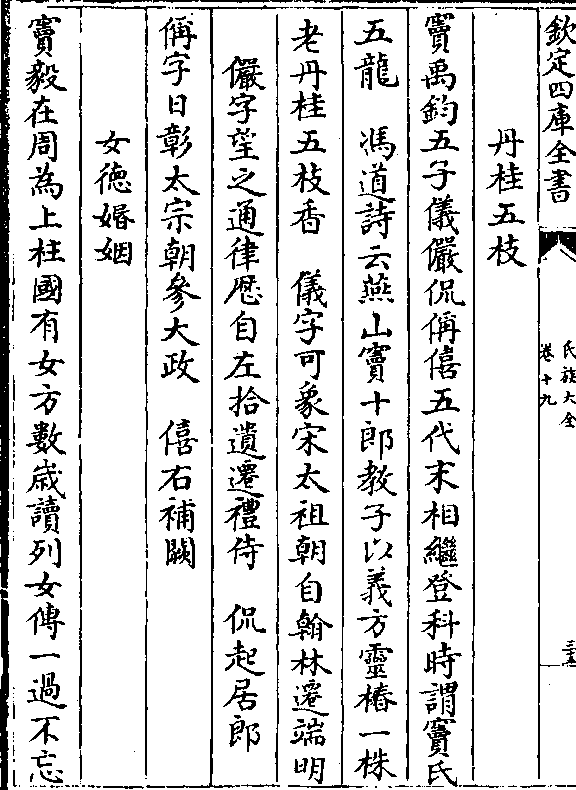 欽定四庫全書
氏族大全
卷十九
丹桂五枝
竇禹鈞五子儀儼侃偁僖五代末相繼登科時謂竇氏
五龍　馮道詩云燕山竇十郎教子以義方靈椿一株
老丹桂五枝香　儀字可象宋太祖朝自翰林遷端明
儼字望之通律歴自左拾遺遷禮侍　侃起居郎
偁字日彰太宗朝參大政　僖右補闕
女徳婚姻
竇毅在周為上柱國有女方數歳讀列女傳一過不忘